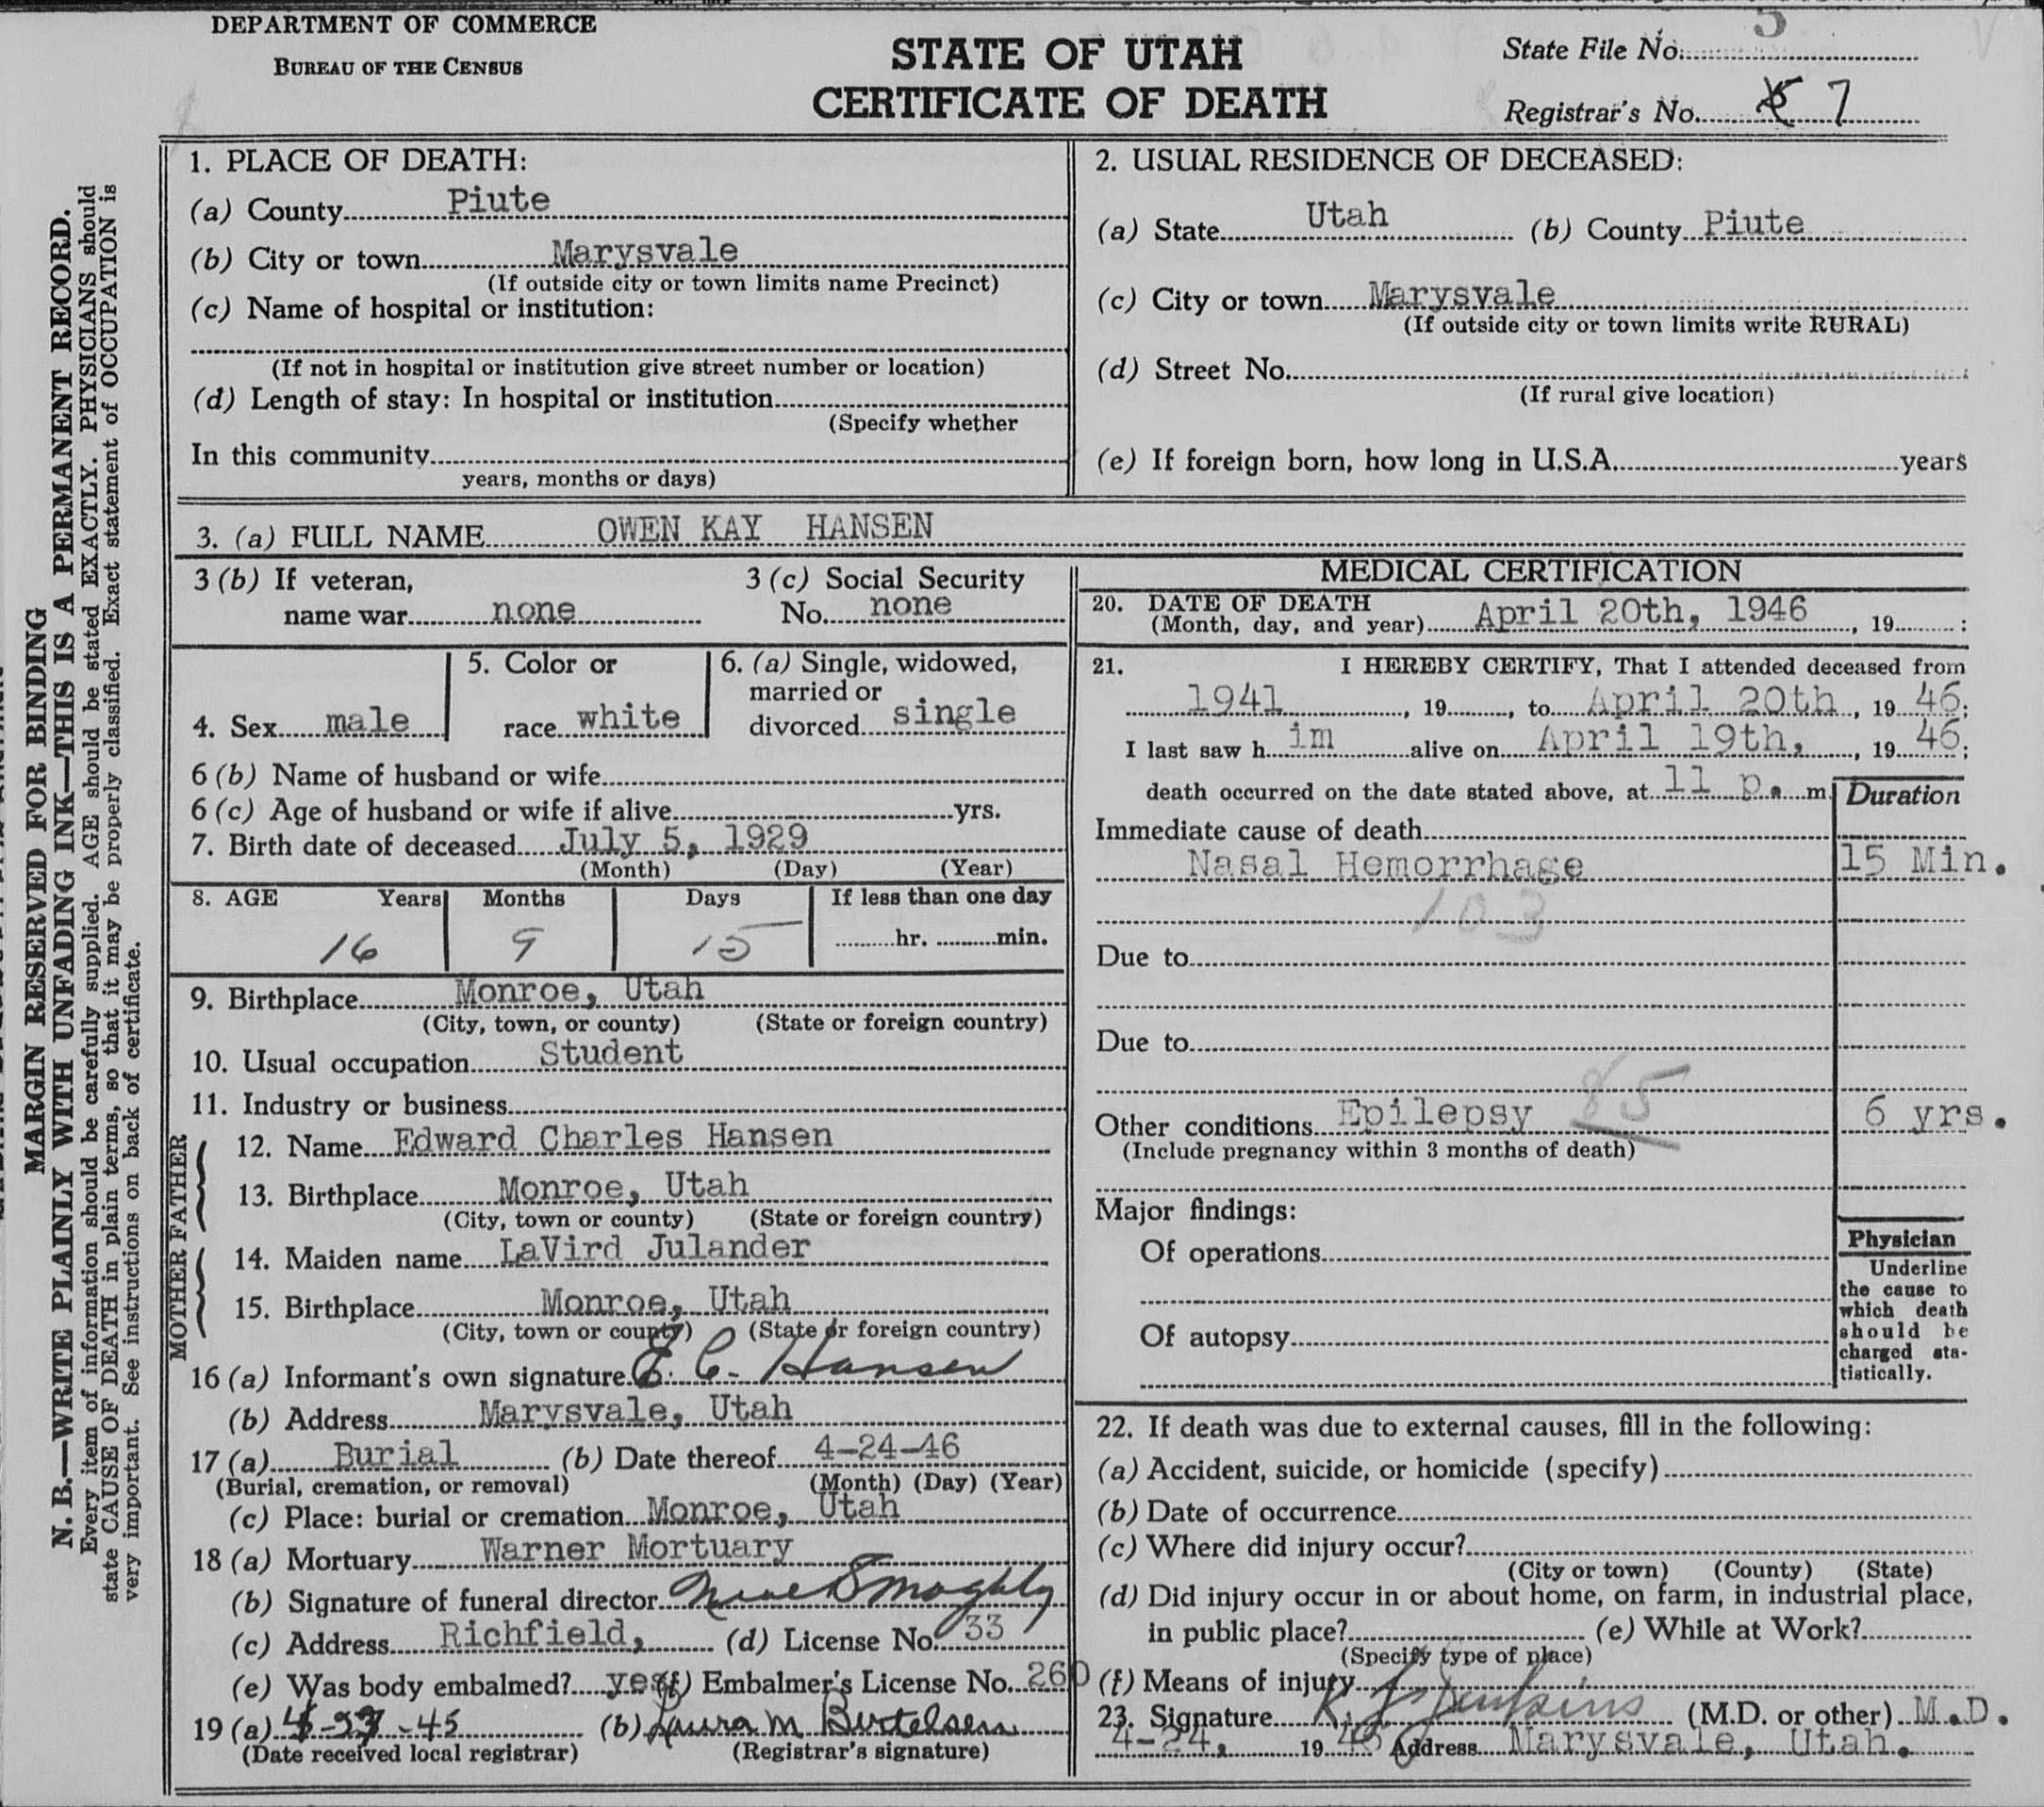 DEPARTMENT OF COMMERCE
BUREAU OF THE CENSUS
STATE OF UTAH
CERTIFICATE OF DEATH
State File No. 5
Registrar's No. 7
MARGIN RESERVED FOR BINDING
N. B.—WRITE PLAINLY WITH UNFADING INK—THIS IS A PERMANENT RECORD.
Every item of information should be carefully supplied. AGE should be stated EXACTLY. PHYSICIANS should
state CAUSE OF DEATH in plain terms, so that it may be properly classified. Exact statement of OCCUPATION is
very important. See instructions on back of certificate.
1. PLACE OF DEATH:
(a) County Piute
(b) City or town Marysvale
(If outside city or town limits name Precinct)
(c) Name of hospital or institution:
(If not in hospital or institution give street number or location)
(d) Length of stay: In hospital or institution
(Specify whether
In this community
years, months or days)
2. USUAL RESIDENCE OF DECEASED:
(a) State Utah (b) County Piute
(c) City or town Marysvale
(If outside city or town limits write RURAL)
(d) Street No.
(If rural give location)
(e) If foreign born, how long in U.S.A. years
3. (a) FULL NAME OWEN KAY HANSEN
3 (b) If veteran,
name war none
3 (c) Social Security
No. none
4. Sex male
5. Color or
race white
6. (a) Single, widowed,
married or
divorced single
6 (b) Name of husband or wife
6 (c) Age of husband or wife if alive yrs.
7. Birth date of deceased July 5, 1929
(Month) (Day) (Year)
8. AGE Years Months Days If less than one day
16 9 15 hr. min.
9. Birthplace Monroe, Utah
(City, town, or county) (State or foreign country)
10. Usual occupation Student
11. Industry or business
FATHER
12. Name Edward Charles Hansen
13. Birthplace Monroe, Utah
(City, town or county) (State or foreign country)
MOTHER
14. Maiden name LaVird Julander
15. Birthplace Monroe, Utah
(City, town or county) (State or foreign country)
16 (a) Informant's own signature E. C. Hansen
(b) Address Marysvale, Utah
17 (a) Burial (b) Date thereof 4-24-46
(Burial, cremation, or removal) (Month) (Day) (Year)
(c) Place: burial or cremation Monroe, Utah
18 (a) Mortuary Warner Mortuary
(b) Signature of funeral director
(c) Address Richfield, (d) License No. 33
(e) Was body embalmed? yes (f) Embalmer's License No. 260
19 (a) -45 (b) Laura M Bertelsen
(Date received local registrar) (Registrar's signature)
MEDICAL CERTIFICATION
20. DATE OF DEATH
(Month, day, and year) April 20th, 1946, 19 :
21. I HEREBY CERTIFY, That I attended deceased from
1941, 19 , to April 20th, 19 46;
I last saw h im alive on April 19th, , 19 46;
death occurred on the date stated above, at 11 p. m.
Duration
Immediate cause of death
Nasal Hemorrhage 15 Min.
103
Due to
Due to
85
Other conditions Epilepsy 6 yrs.
(Include pregnancy within 3 months of death)
Major findings:
Of operations
Of autopsy
Physician
Underline
the cause to
which death
should be
charged sta-
tistically.
22. If death was due to external causes, fill in the following:
(a) Accident, suicide, or homicide (specify)
(b) Date of occurrence
(c) Where did injury occur?
(City or town) (County) (State)
(d) Did injury occur in or about home, on farm, in industrial place,
in public place? (e) While at Work?
(Specify type of place)
(f) Means of injury
23. Signature Jenkins (M.D. or other) M.D.
4-24, 19 46 Address Marysvale, Utah.